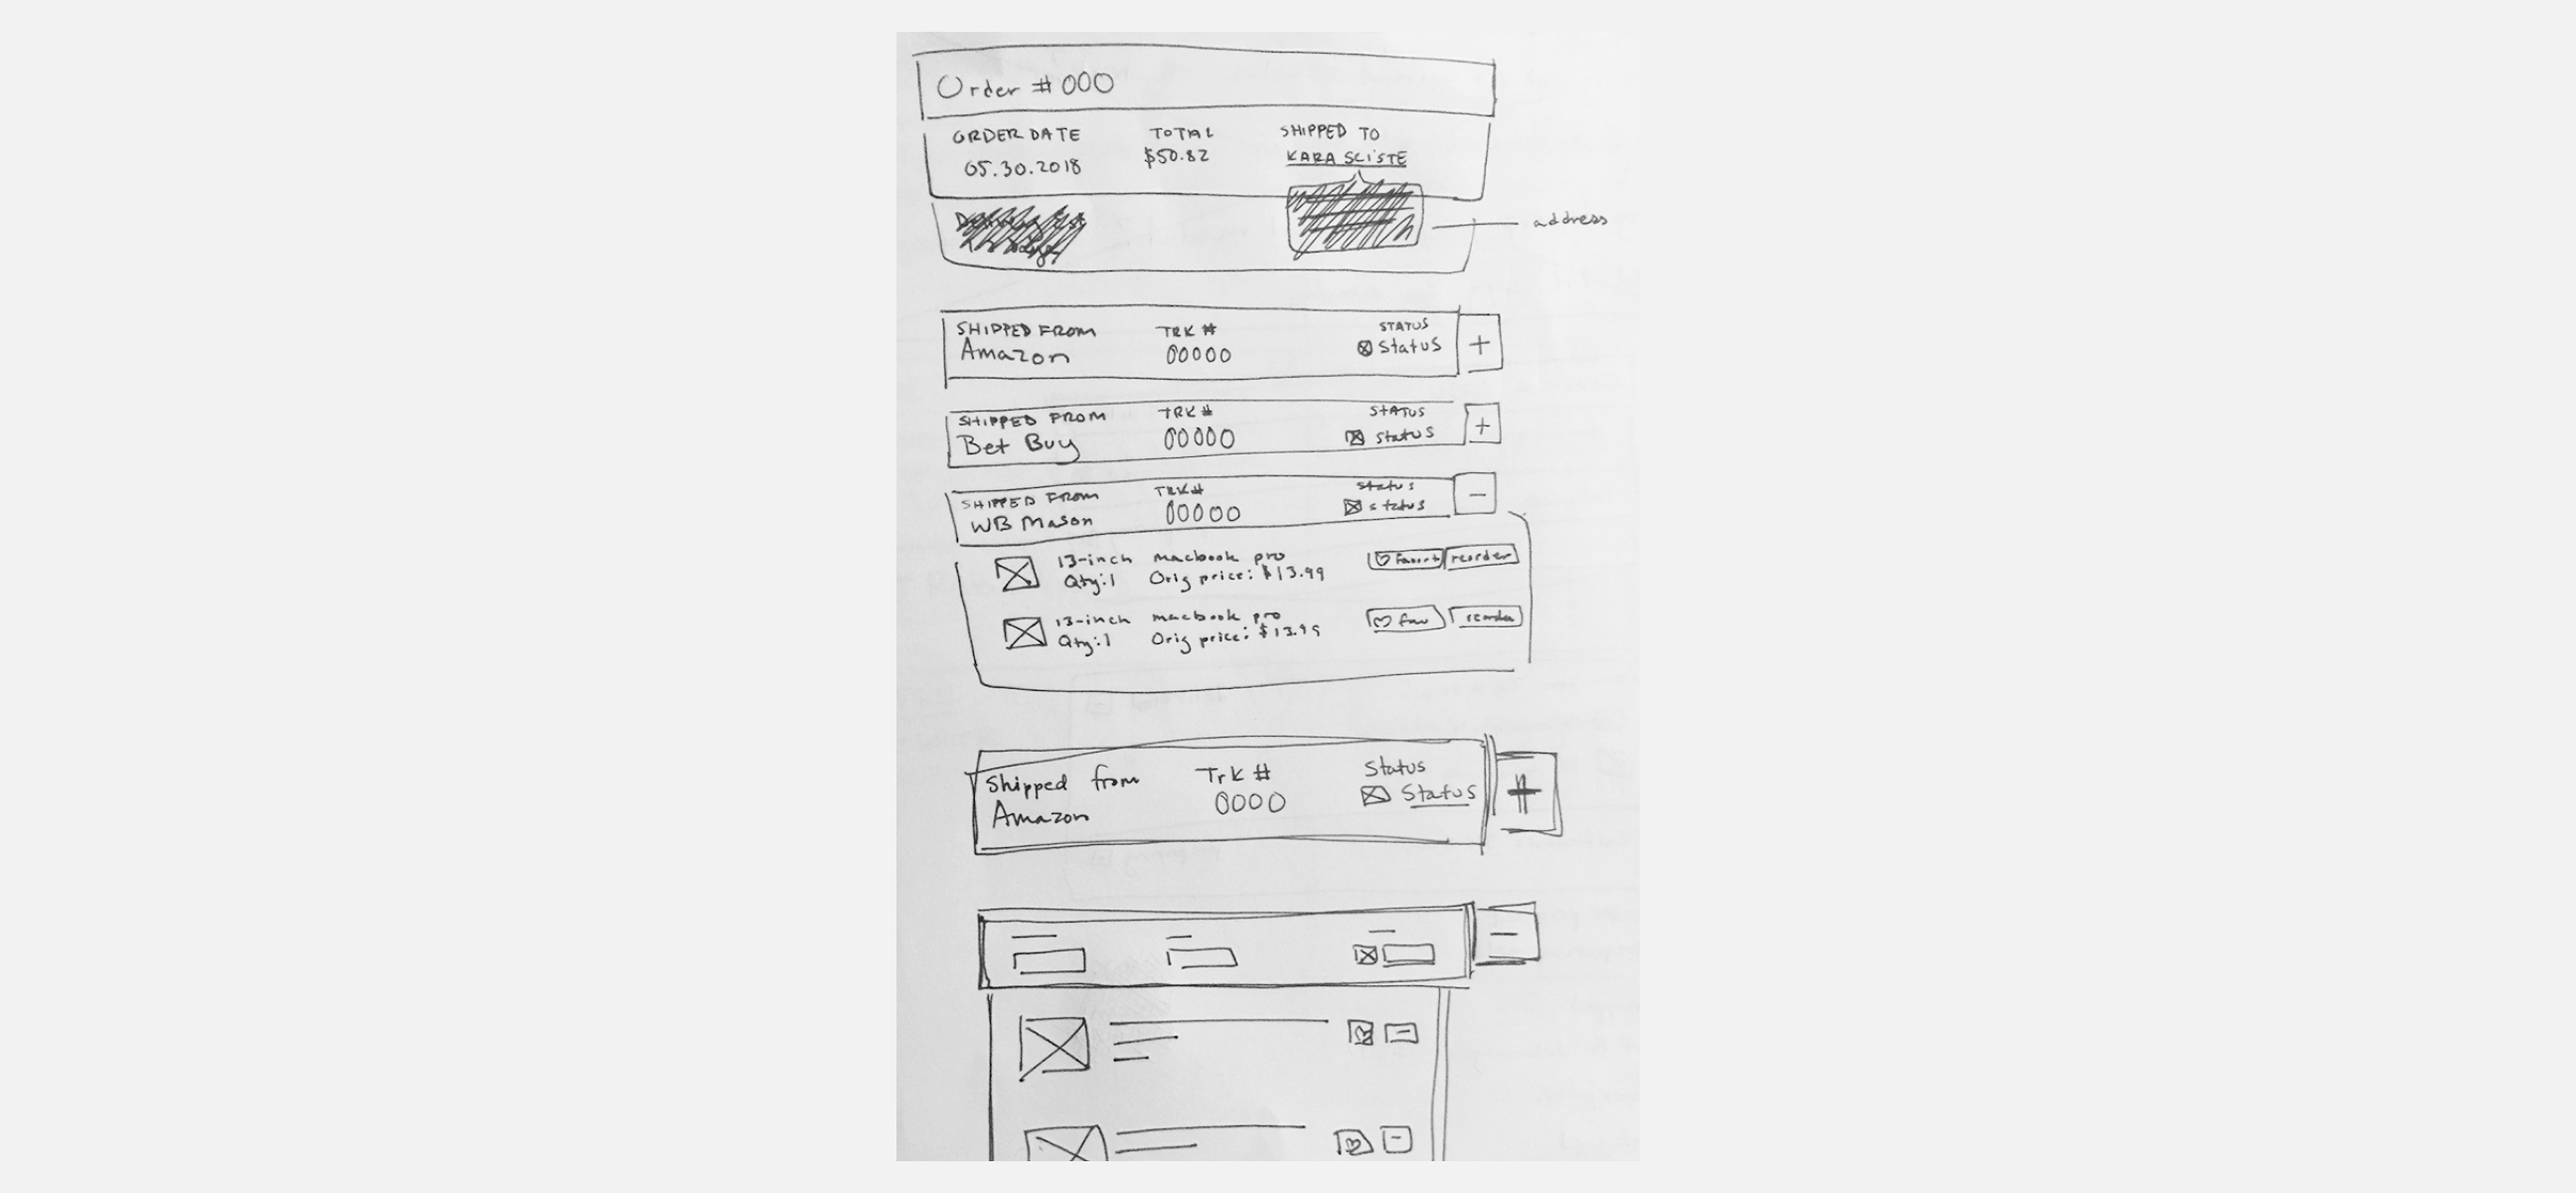 Order #000
ORDER DATE
TOTAL
SHIPPED TO
05.30.2018
$50.82
KARA SCISTE
address
SHIPPED FROM
TRK #
STATUS
Amazon
00000
Status
+
SHIPPED FROM
TRK #
STATUS
Bet Buy
00000
status
+
SHIPPED FROM
TRK #
status
WB Mason
00000
status
-
13-inch macbook pro
Qty:1 Orig price: $13.99
reorder
13-inch macbook pro
Qty:1 Orig price: $13.99
fav
Shipped from
Trk #
Status
Amazon
0000
Status
+
-